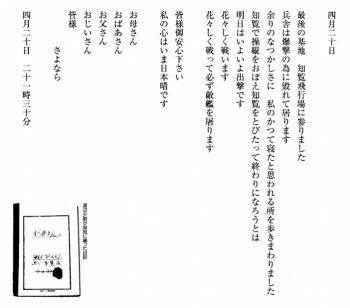 四月二十日
最後の基地　知覧飛行場に参りました
兵舎は爆撃の為に毀れて居ります
余りのなつかしさに　私のかつて寝たと思われる所を歩きまわりました
知覧で操縦をおぼえ知覧をとびたって終わりになろうとは
明日はいよいよ出撃です
花々しく戦います
花々しく戦って必ず敵艦を屠ります
皆様御安心下さい
私の心はいま日本晴です
お母さん
おばあさん
お父さん
おじいさん
皆様
さよなら
四月二十日　二十一時三十分